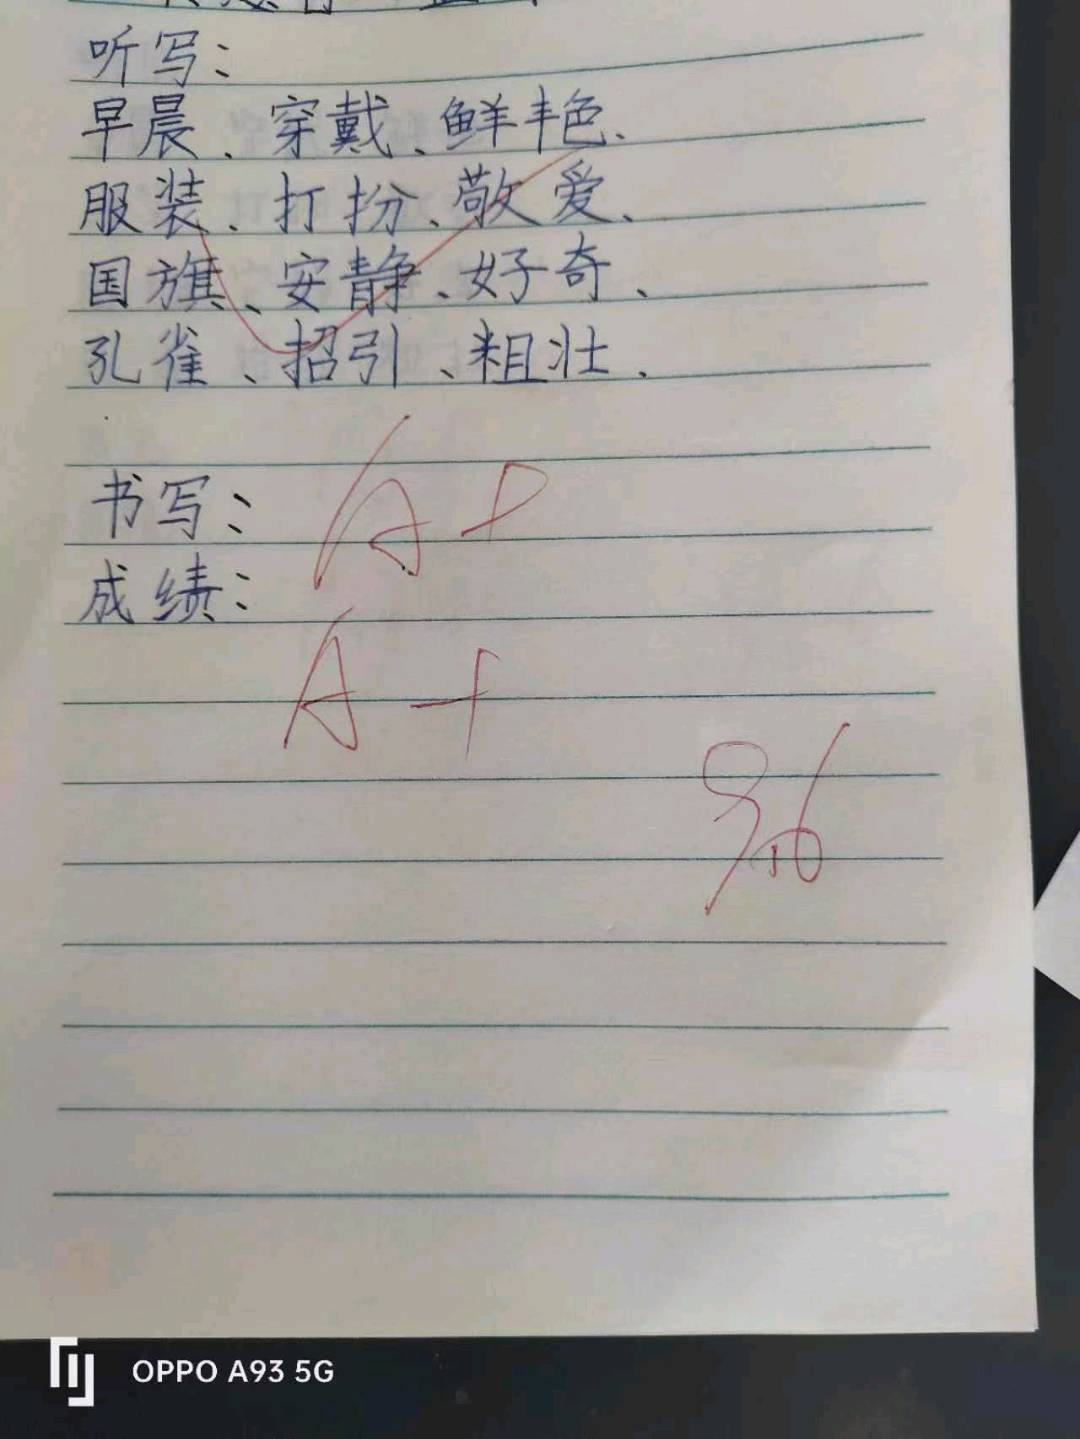 听写：
早晨、穿戴、鲜艳、
服装、打扮、敬爱、
国旗、安静、好奇、
孔雀、招引、粗壮、
书写：A+
成绩：
A+
9.16
OPPO A93 5G